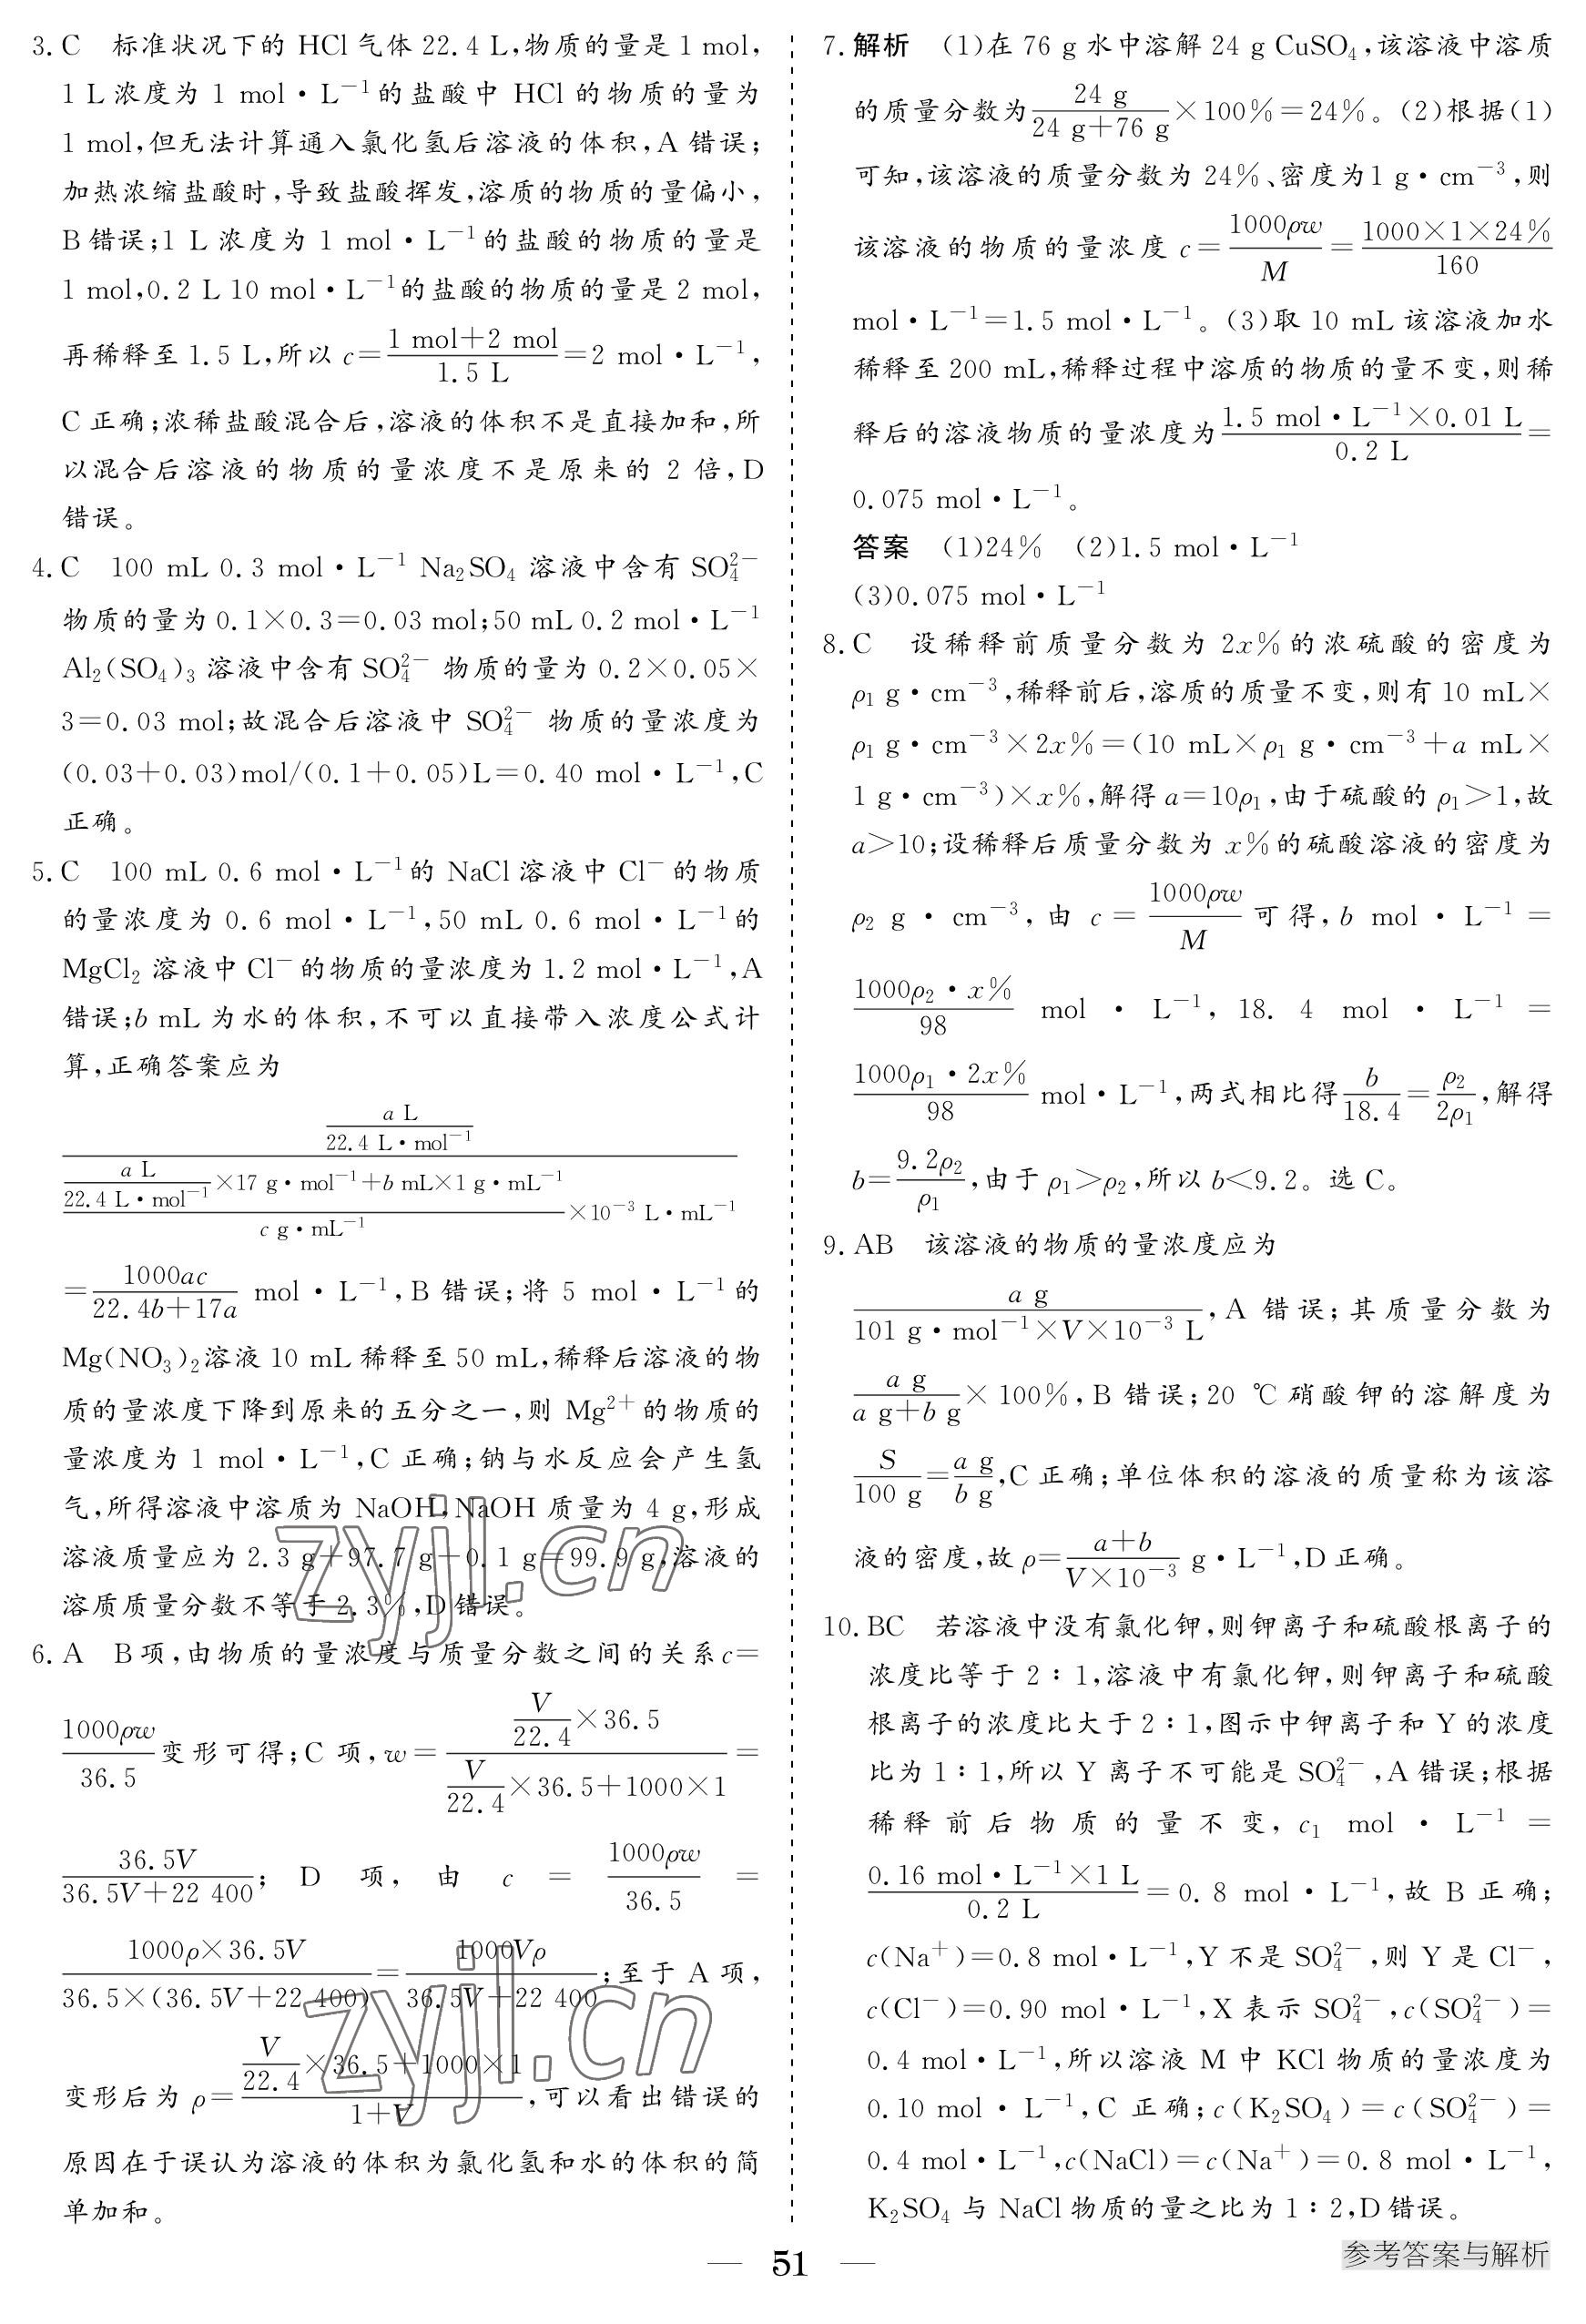 3. C 标准状况下的 HCl 气体 22.4 L,物质的量是 1 mol,
1 L 浓度为 1 mol·L⁻¹ 的盐酸中 HCl 的物质的量为
1 mol,但无法计算通入氯化氢后溶液的体积,A 错误;
加热浓缩盐酸时,导致盐酸挥发,溶质的物质的量偏小,
B 错误;1 L 浓度为 1 mol·L⁻¹ 的盐酸的物质的量是
1 mol,0.2 L 10 mol·L⁻¹ 的盐酸的物质的量是 2 mol,
再稀释至 1.5 L,所以 c=(1 mol+2 mol)/(1.5 L)=2 mol·L⁻¹,
C 正确;浓稀盐酸混合后,溶液的体积不是直接加和,所
以混合后溶液的物质的量浓度不是原来的 2 倍,D
错误。
4. C 100 mL 0.3 mol·L⁻¹ Na₂SO₄ 溶液中含有 SO₄²⁻
物质的量为 0.1×0.3=0.03 mol;50 mL 0.2 mol·L⁻¹
Al₂(SO₄)₃ 溶液中含有 SO₄²⁻ 物质的量为 0.2×0.05×
3=0.03 mol;故混合后溶液中 SO₄²⁻ 物质的量浓度为
(0.03+0.03)mol/(0.1+0.05)L=0.40 mol·L⁻¹,C
正确。
5. C 100 mL 0.6 mol·L⁻¹ 的 NaCl 溶液中 Cl⁻ 的物质
的量浓度为 0.6 mol·L⁻¹,50 mL 0.6 mol·L⁻¹ 的
MgCl₂ 溶液中 Cl⁻ 的物质的量浓度为 1.2 mol·L⁻¹,A
错误;b mL 为水的体积,不可以直接带入浓度公式计
算,正确答案应为
(a L/22.4 L·mol⁻¹)/{[(a L/22.4 L·mol⁻¹)×17 g·mol⁻¹+b mL×1 g·mL⁻¹]/(c g·mL⁻¹)×10⁻³ L·mL⁻¹}
=1000ac/(22.4b+17a) mol·L⁻¹,B 错误;将 5 mol·L⁻¹ 的
Mg(NO₃)₂溶液 10 mL 稀释至 50 mL,稀释后溶液的物
质的量浓度下降到原来的五分之一,则 Mg²⁺ 的物质的
量浓度为 1 mol·L⁻¹,C 正确;钠与水反应会产生氢
气,所得溶液中溶质为 NaOH,NaOH 质量为 4 g,形成
溶液质量应为 2.3 g+97.7 g-0.1 g=99.9 g,溶液的
溶质质量分数不等于 2.3%,D 错误。
6. A B 项,由物质的量浓度与质量分数之间的关系 c=
1000ρw/36.5 变形可得;C 项,w=(V/22.4×36.5)/(V/22.4×36.5+1000×1)=
36.5V/(36.5V+22 400);D 项,由 c=1000ρw/36.5=
1000ρ×36.5V/[36.5×(36.5V+22 400)]=1000Vρ/(36.5V+22 400);至于 A 项,
变形后为 ρ=(V/22.4×36.5+1000×1)/(1+V),可以看出错误的
原因在于误认为溶液的体积为氯化氢和水的体积的简
单加和。
7. 解析 (1)在 76 g 水中溶解 24 g CuSO₄,该溶液中溶质
的质量分数为 24 g/(24 g+76 g)×100%=24%。(2)根据(1)
可知,该溶液的质量分数为 24%、密度为1 g·cm⁻³,则
该溶液的物质的量浓度 c=1000ρw/M=(1000×1×24%)/160
mol·L⁻¹=1.5 mol·L⁻¹。(3)取 10 mL 该溶液加水
稀释至 200 mL,稀释过程中溶质的物质的量不变,则稀
释后的溶液物质的量浓度为(1.5 mol·L⁻¹×0.01 L)/(0.2 L)=
0.075 mol·L⁻¹。
答案 (1)24% (2)1.5 mol·L⁻¹
(3)0.075 mol·L⁻¹
8. C 设稀释前质量分数为 2x% 的浓硫酸的密度为
ρ₁ g·cm⁻³,稀释前后,溶质的质量不变,则有 10 mL×
ρ₁ g·cm⁻³×2x%=(10 mL×ρ₁ g·cm⁻³+a mL×
1 g·cm⁻³)×x%,解得 a=10ρ₁,由于硫酸的 ρ₁>1,故
a>10;设稀释后质量分数为 x%的硫酸溶液的密度为
ρ₂ g·cm⁻³,由 c=1000ρw/M 可得,b mol·L⁻¹=
(1000ρ₂·x%)/98 mol·L⁻¹,18.4 mol·L⁻¹=
(1000ρ₁·2x%)/98 mol·L⁻¹,两式相比得 b/18.4=ρ₂/2ρ₁,解得
b=9.2ρ₂/ρ₁,由于 ρ₁>ρ₂,所以 b<9.2。选 C。
9. AB 该溶液的物质的量浓度应为
a g/(101 g·mol⁻¹×V×10⁻³ L),A 错误;其质量分数为
a g/(a g+b g)×100%,B 错误;20 ℃硝酸钾的溶解度为
S/100 g=a g/b g,C 正确;单位体积的溶液的质量称为该溶
液的密度,故 ρ=(a+b)/(V×10⁻³) g·L⁻¹,D 正确。
10. BC 若溶液中没有氯化钾,则钾离子和硫酸根离子的
浓度比等于 2∶1,溶液中有氯化钾,则钾离子和硫酸
根离子的浓度比大于 2∶1,图示中钾离子和 Y 的浓度
比为 1∶1,所以 Y 离子不可能是 SO₄²⁻,A 错误;根据
稀释前后物质的量不变,c₁ mol·L⁻¹=
(0.16 mol·L⁻¹×1 L)/(0.2 L)=0.8 mol·L⁻¹,故 B 正确;
c(Na⁺)=0.8 mol·L⁻¹,Y 不是 SO₄²⁻,则 Y 是 Cl⁻,
c(Cl⁻)=0.90 mol·L⁻¹,X 表示 SO₄²⁻,c(SO₄²⁻)=
0.4 mol·L⁻¹,所以溶液 M 中 KCl 物质的量浓度为
0.10 mol·L⁻¹,C 正确;c(K₂SO₄)=c(SO₄²⁻)=
0.4 mol·L⁻¹,c(NaCl)=c(Na⁺)=0.8 mol·L⁻¹,
K₂SO₄ 与 NaCl 物质的量之比为 1∶2,D 错误。
zyjl.cn
zyjl.cn
— 51 —
参考答案与解析